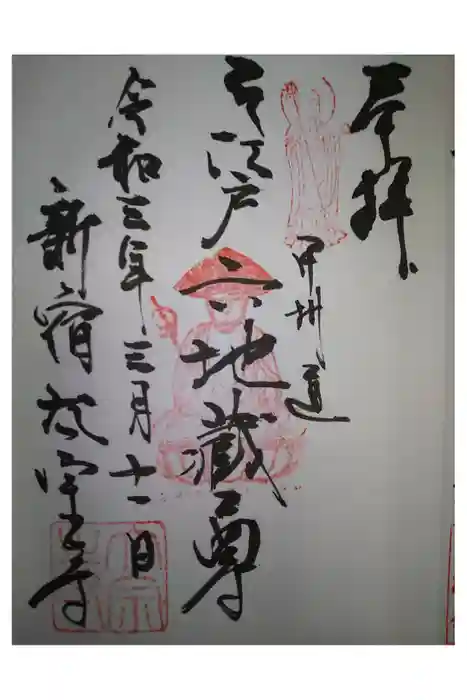 奉拝
甲州道
江戸六地蔵尊
令和三年三月十一日
新宿太宗寺